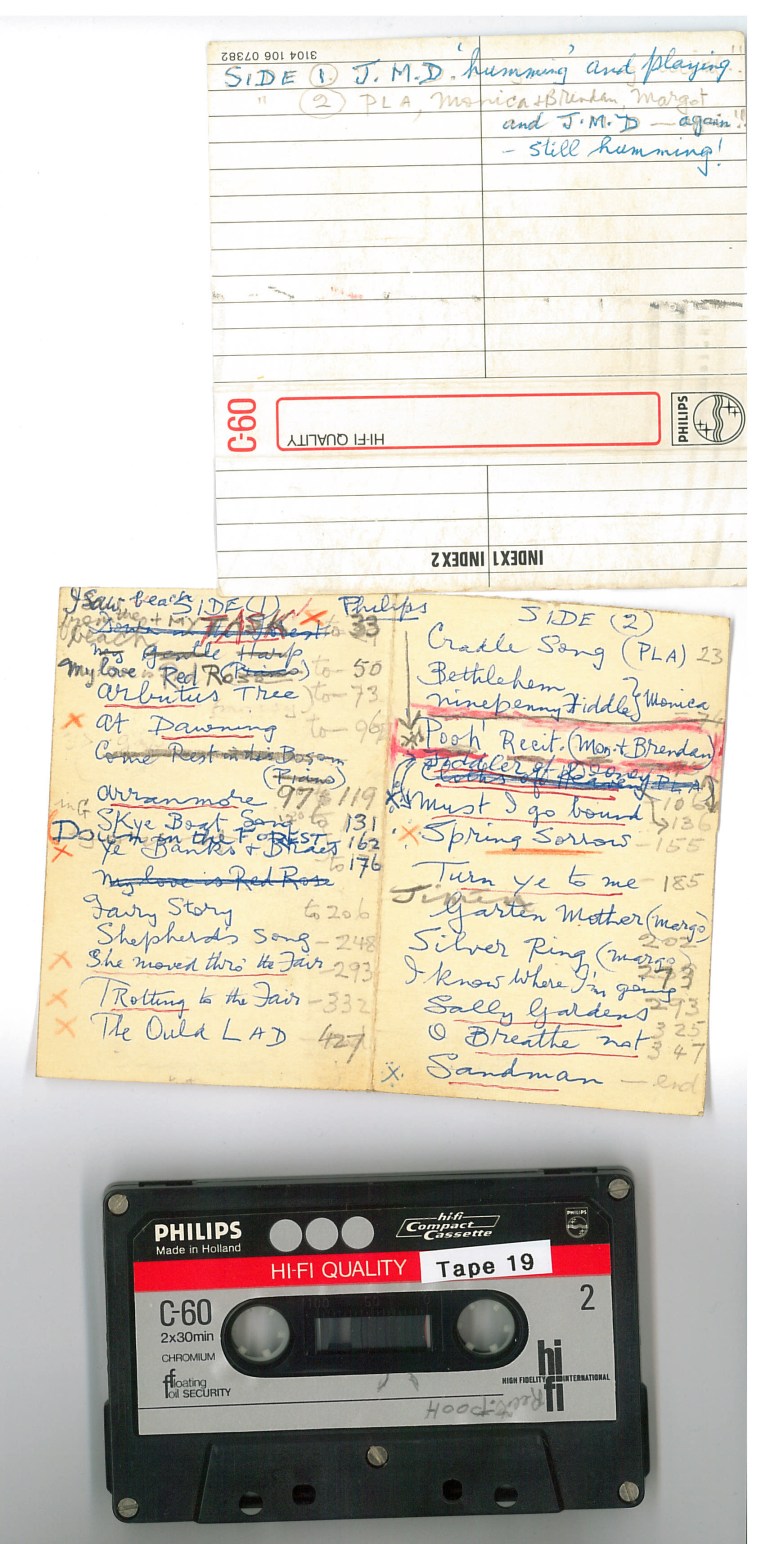 3104 106 07382
SIDE (1) J.M.D. 'humming' and playing!!
" (2) PLA, Monica + Brendan, Margot
and J.M.D — again!!
- still humming!
C-60
HI-FI QUALITY
PHILIPS
INDEX 1 INDEX 2
I saw from the beach SIDE (1) Philips
+ MY TASK to 33
my Gentle Harp
My love is Red Rose (Piano) to — 50
Arbutus Tree to — 73
At Dawning to — 96
Come Rest in this Bosom
(Piano)
Arranmore 97 to 119
in G Skye Boat Song to 131
Down in the FOREST
Ye Banks + Braes 162
to 176
My love is Red Rose
Fairy Story to 206
Shepherd's Song — 248
She moved thro' the Fair — 293
TRotting to the Fair — 332
The Ould LAD — 427
SIDE (2)
Cradle Song (PLA) 23
Bethlehem
ninepenny Fiddle } Monica
74
'Pooh' Recit. (Mon + Brendan)
Fiddler of Dooney PLA
Cloths of Heaven
106
Must I go bound
136
Spring Sorrow — 155
Turn ye to me — 185
Garten Mother (Margo)
202
Silver Ring (Margo)
I know where I'm going 273
Sally Gardens 293
325
O Breathe not 347
Sandman — end
PHILIPS
Made in Holland
hi-fi
Compact
Cassette
PHILIPS
HI-FI QUALITY Tape 19
C-60
2
2x30min
CHROMIUM
floating
foil SECURITY
100 50
hi
HIGH FIDELITY INTERNATIONAL
fi
Recit. POOH